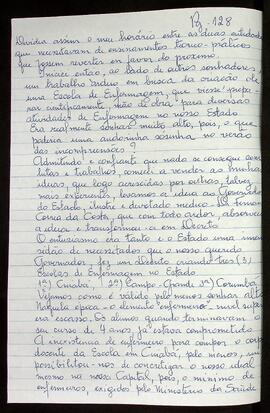 Pg. 128
Dividia assim o meu horário entre as duas entidades
que necessitavam de ensinamentos teórico-práticos
que fossem reverter em favor do próximo.
Iniciei então, ao lado de outros sonhadores,
um trabalho árduo em busca da criação de
uma Escola de Enfermagem, que viesse prepa-
rar cientificamente, mão de obra, para diversas
atividades de Enfermagem no nosso Estado.
Era realmente sonhar muito alto, pois, o que
poderia uma andorinha sozinha no verão
das incompreensões?
Admitindo e confiante que nada se consegue sem
lutas e trabalhos, comecei a vender as minhas
ideias, que logo acrescidas por outras, talvez,
mais experientes, levamos a ideia ao Governador
do Estado, ilustre e devotado médico - Dr.
Correa da Costa, que com todo ardor, absorveu
a ideia e transformou-a em Decreto.
O entusiasmo era tanto e o Estado uma imen-
sidão de necessitados que o nosso querido
Governador, fez um Decreto criando três (3)
Escolas de Enfermagem no Estado.
1ª) Cuiabá, 2ª) Campo-Grande 3ª) Corumbá.
Vejamos como é válido pelo menos sonhar alto.
Naquela época o elemento "enfermeiro" universi
era escasso. Os alunos quando terminavam o
seu curso de 4 anos já estava comprometido.
A inexistência de enfermeiro para compor o corpo
docente da Escola em Cuiabá, pelo menos, im-
possibilitou-nos de concretizar o nosso ideal
mesmo na nossa Capital, pois, o mínimo de
enfermeiros, exigidos pelo Ministério da Saúde